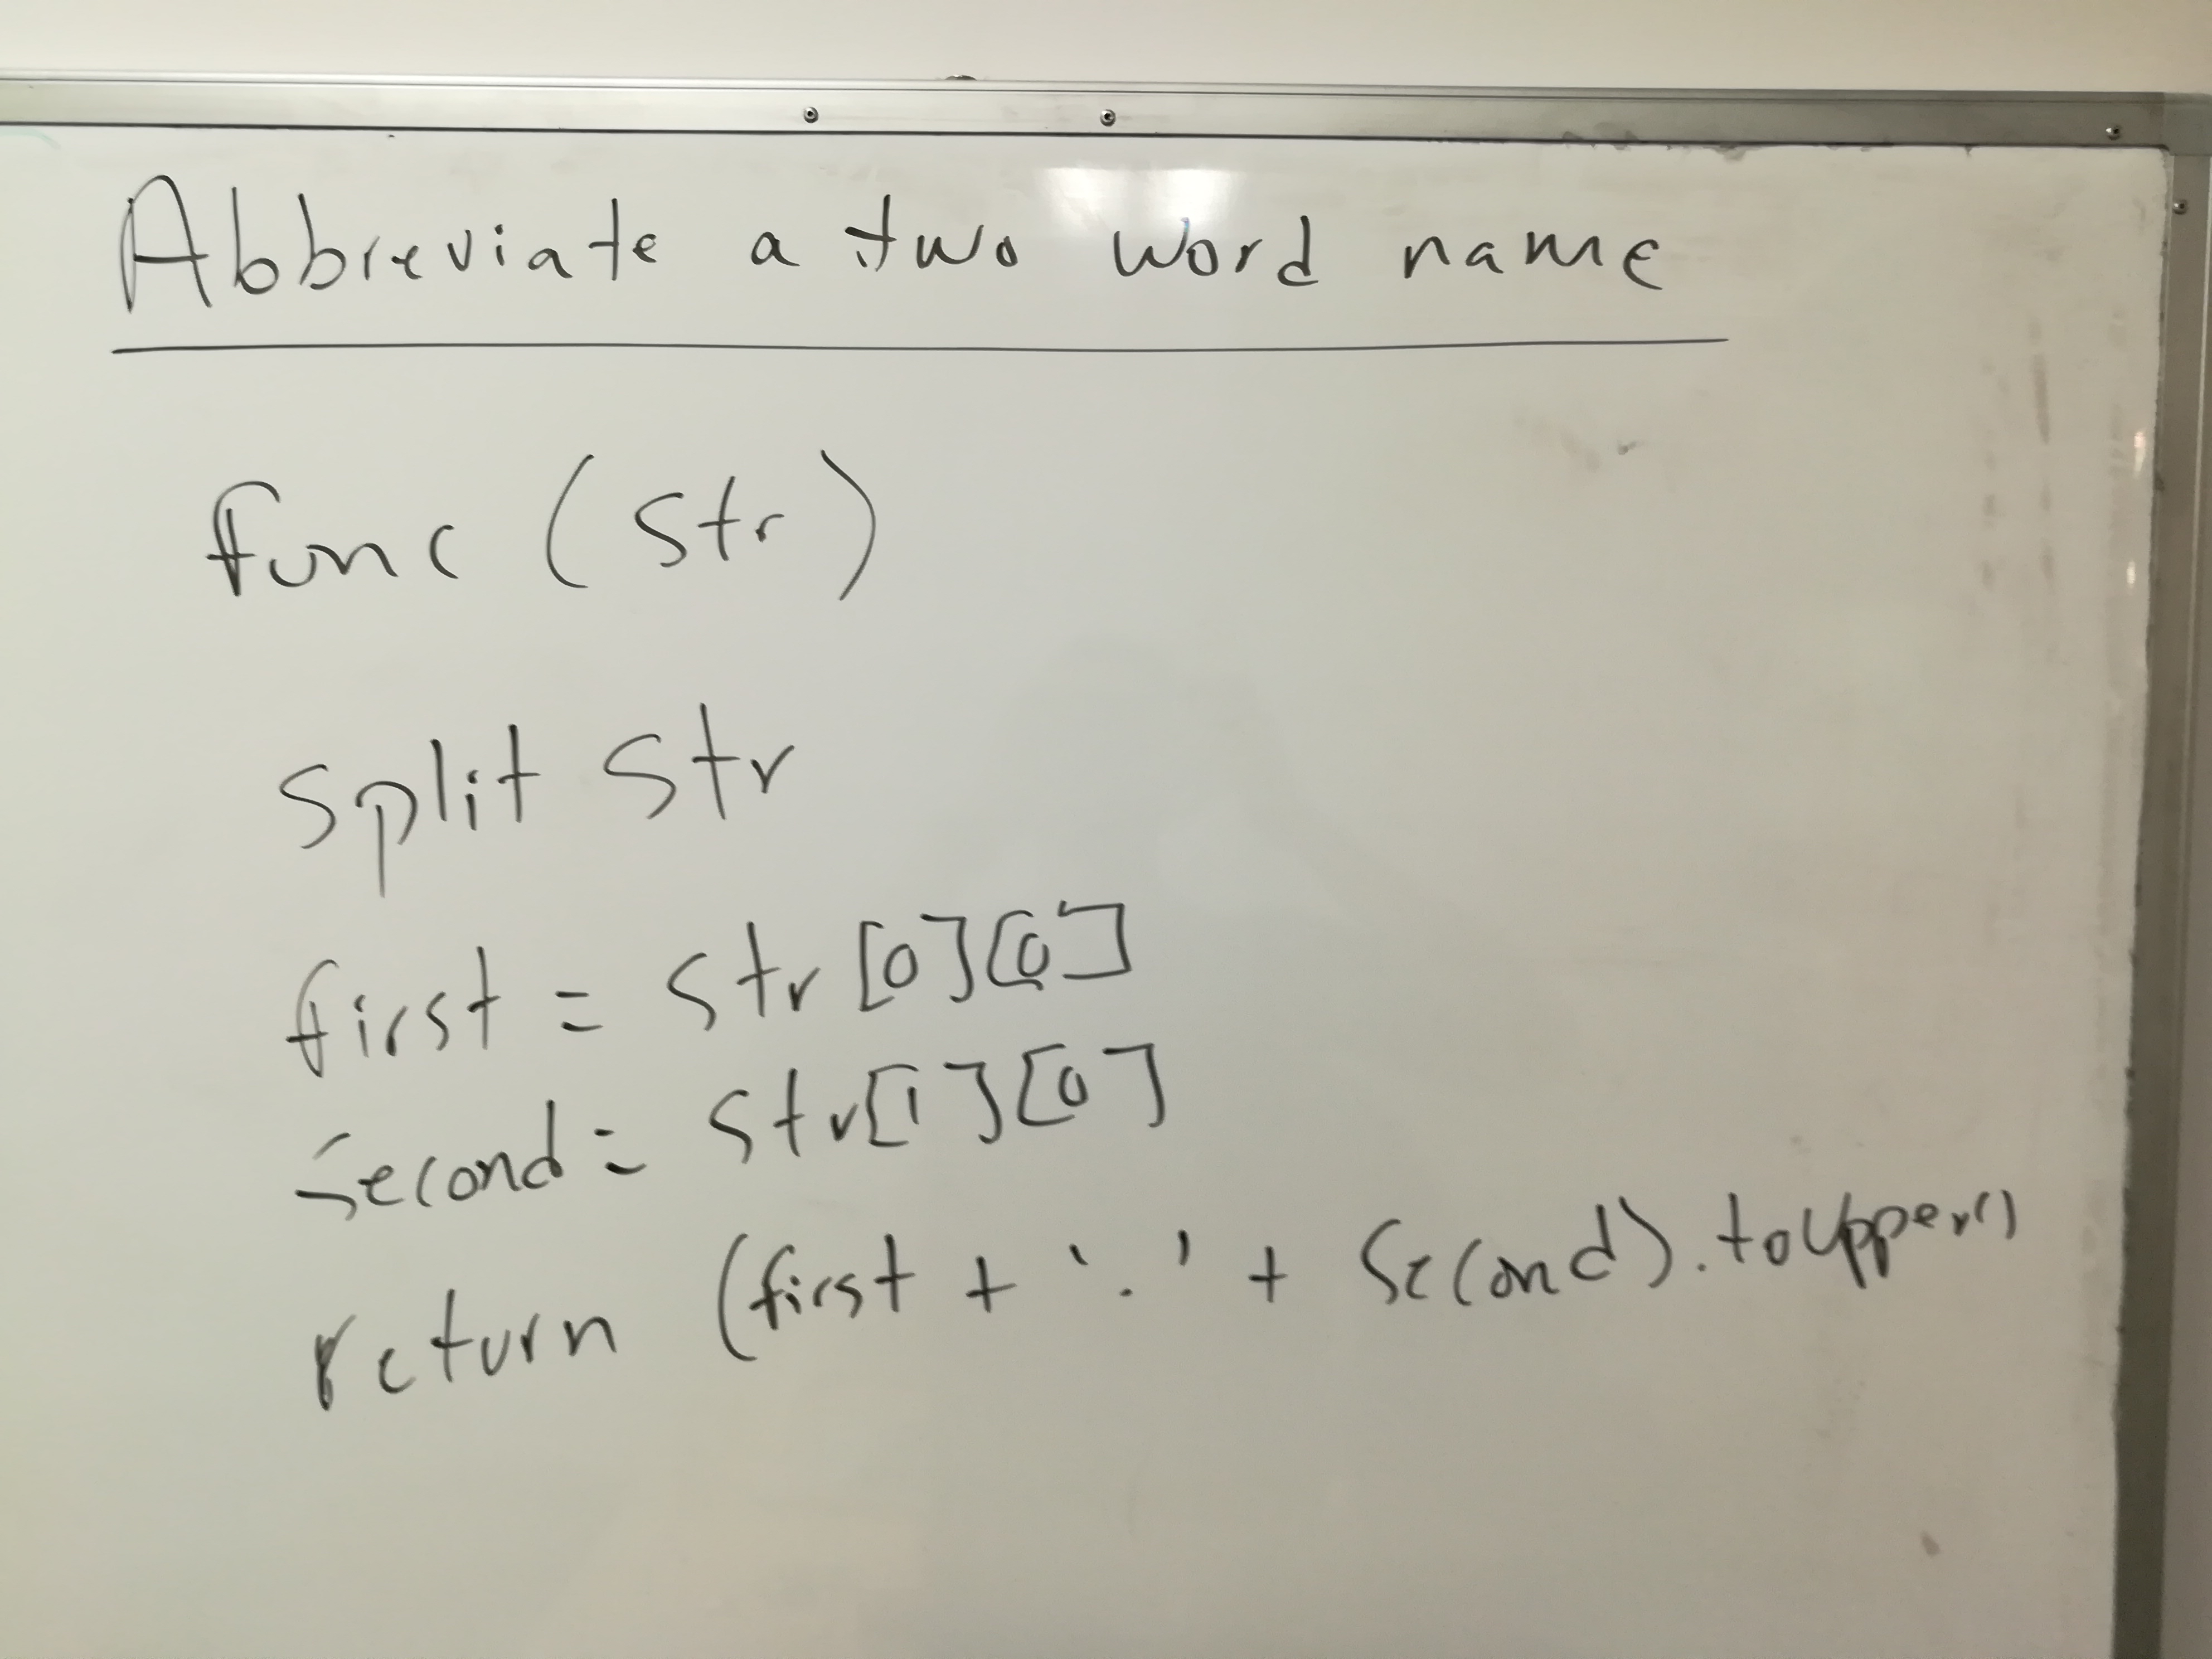 Abbreviate a two word name
func (str)
split str
first = str[0][0]
second = str[1][0]
return (first + '.' + second).toUpper()